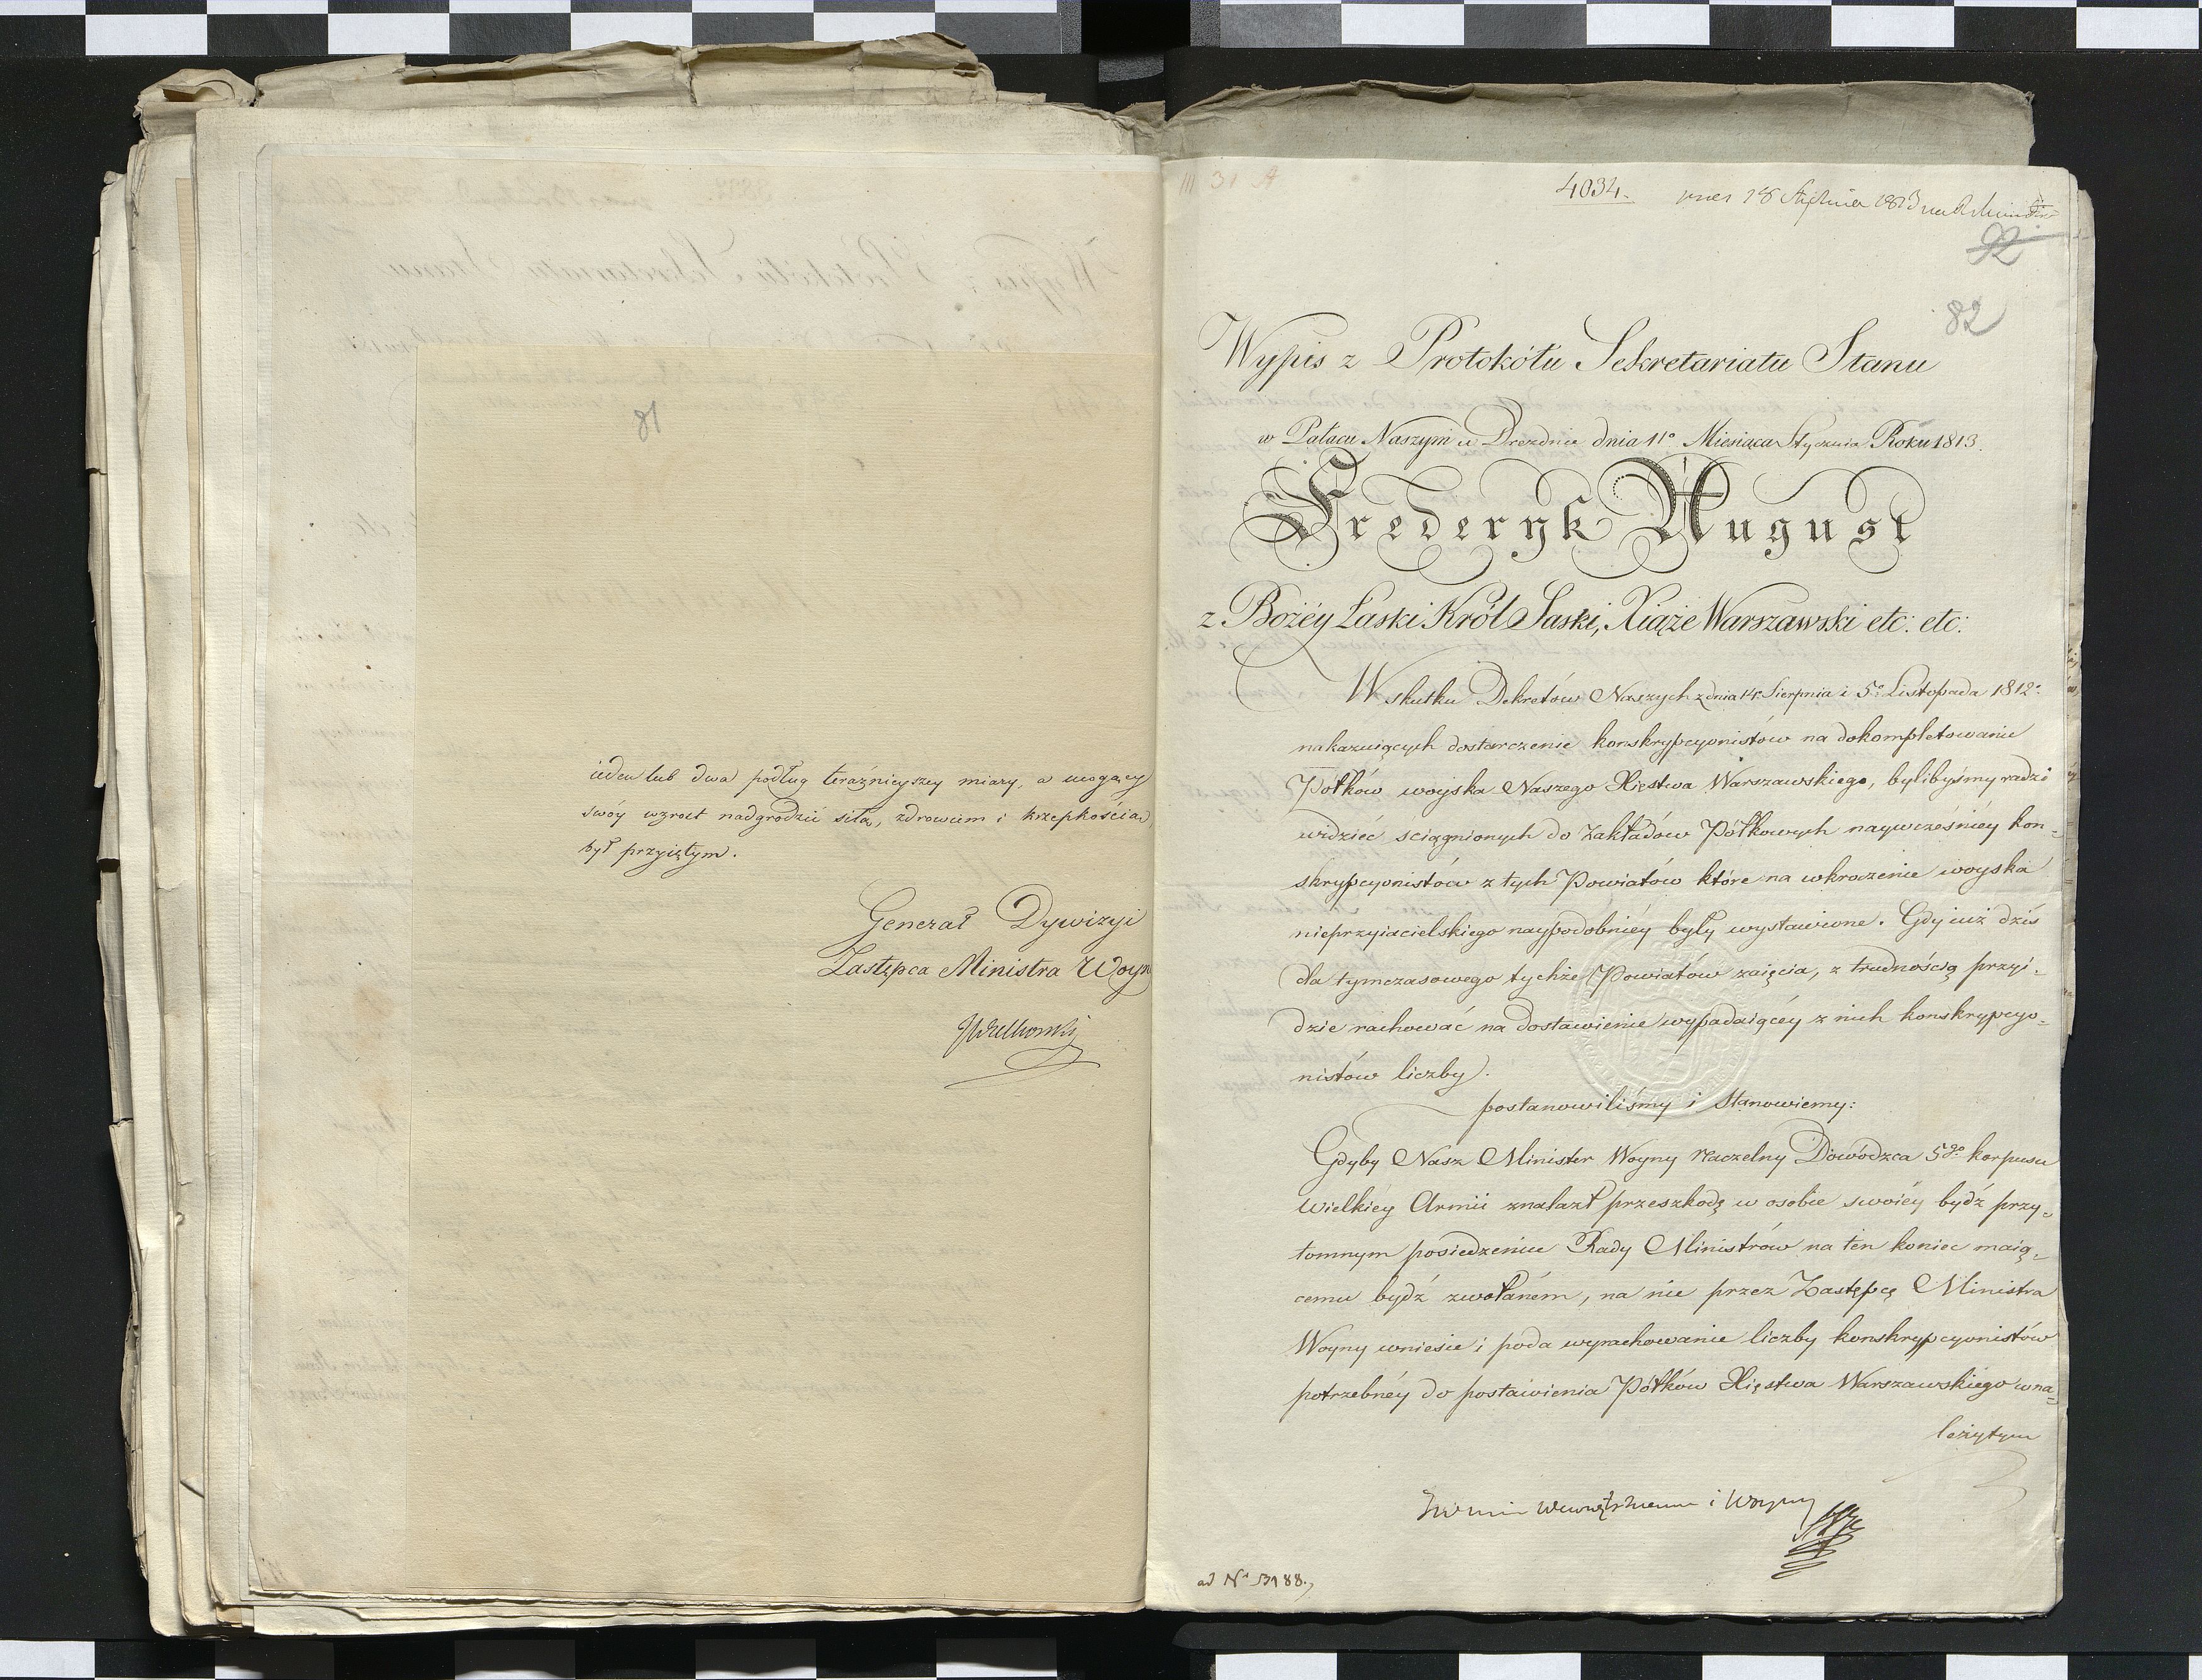 81
ieden lub dwa podług teraźnieyszey miary, a mogący
swóy wzrost nadgrodzić siłą, zdrowiem i krzepkością,
był przyiętym.
Generał Dywizyi
Zastępca Ministra Woyn
III 31 A
4034.
92
82
Wypis z Protokółu Sekretariatu Stanu
w Pałacu Naszym w Dreznie dnia 11º Miesiąca Stycznia Roku 1813.
Frederyk August
z Bożéy Łaski Król Saski, Xiąże Warszawski etc: etc:
W skutku Dekretów Naszych z dnia 14º Sierpnia i 5º Listopada 1812º
nakazuiących dostarczenie konskrypcyonistów na dokompletowanie
Półków woyska Naszego Xięstwa Warszawskiego, bylibyśmy radzi
widzieć ściągnionych do Zakładów Półkowych naywcześniéy kon-
skrypcyonistów z tych Powiatów które na wkroczenie woyska
nieprzyiacielskiego naypodobniéy były wystawione. Gdy iuż dziś
dla tymczasowego tychże Powiatów zaięcia, z trudnością przyi-
dzie rachować na dostawienie wypadaiącéy z nich konskrypcyo-
nistów liczby.
postanowiliśmy i Stanowiemy:
Gdyby Nasz Minister Woyny Naczelny Dowódzca 5go korpusu
Wielkiéy Armii znalazł przeszkodę w osobie swoiéy bydź przy-
tomnym posiedzeniu Rady Ministrów na ten koniec maią-
cemu bydź zwołaném, na nie przez Zastępcę Ministra
Woyny wniesie i poda wyrachowanie liczby konskrypcyonistów
potrzebnéy do postawienia Półków Xięstwa Warszawskiego w na-
leżytym
i Woyny
ad Nº 3188.